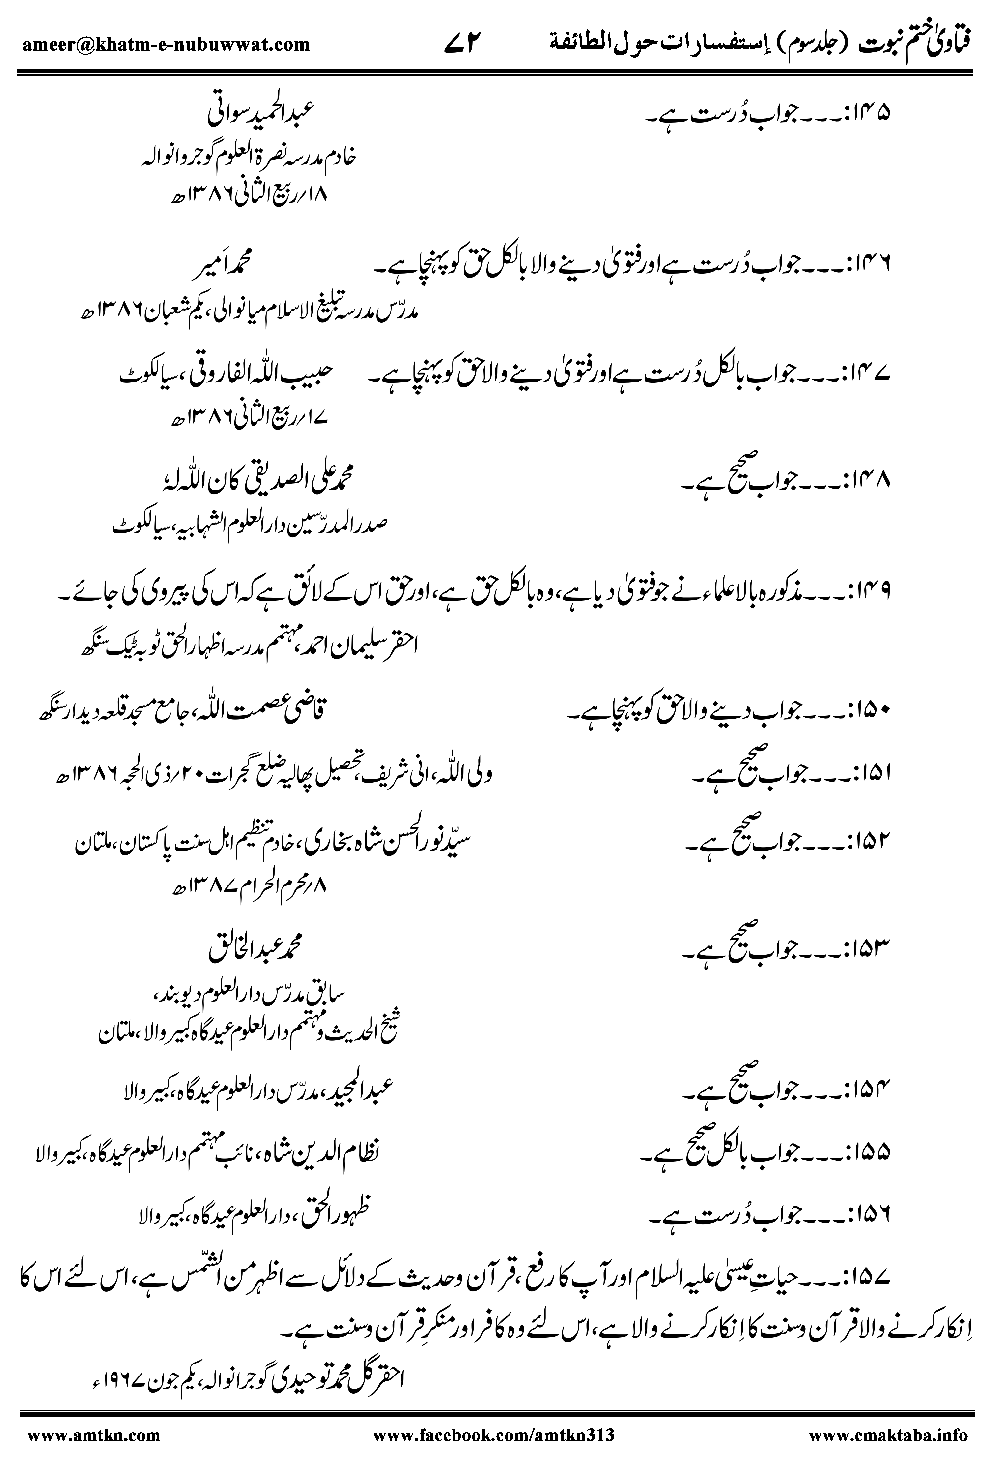 فتاویٰ ختم نبوت (جلد سوم) إستفسارات حول الطائفة ۷۲ ameer@khatm-e-nubuwwat.com
۱۴۵:۔۔۔جواب دُرست ہے۔ عبدالحمید سواتی
خادم مدرسہ نصرۃ العلوم گوجروانوالہ
۱۸؍ربیع الثانی ۱۳۸۶ھ
۱۴۶:۔۔۔جواب دُرست ہے اور فتویٰ دینے والا بالکل حق کو پہنچا ہے۔ محمد اَمیر
مدرّس مدرسہ تبلیغ الاسلام میانوالی، یکم شعبان ۱۳۸۶ھ
۱۴۷:۔۔۔جواب بالکل دُرست ہے اور فتویٰ دینے والا حق کو پہنچا ہے۔ حبیب اللہ الفاروقی، سیالکوٹ
۱۷؍ربیع الثانی ۱۳۸۶ھ
۱۴۸:۔۔۔جواب صحیح ہے۔ محمد علی الصدیقی کان اللہ لہٗ
صدر المدرّسین دارالعلوم الشہابیہ، سیالکوٹ
۱۴۹:۔۔۔مذکورہ بالا علماء نے جو فتویٰ دیا ہے، وہ بالکل حق ہے، اور حق اس کے لائق ہے کہ اس کی پیروی کی جائے۔
احقر سلیمان احمد، مہتمم مدرسہ اظہار الحق ٹوبہ ٹیک سنگھ
۱۵۰:۔۔۔جواب دینے والا حق کو پہنچا ہے۔ قاضی عصمت اللہ، جامع مسجد قلعہ دیدار سنگھ
۱۵۱:۔۔۔جواب صحیح ہے۔ ولی اللہ، انی شریف، تحصیل پھالیہ ضلع گجرات ۲۰؍ذی الحجہ ۱۳۸۶ھ
۱۵۲:۔۔۔جواب صحیح ہے۔ سیّد نور الحسن شاہ بخاری، خادم تنظیم اہل سنت پاکستان، ملتان
۸؍محرم الحرام ۱۳۸۷ھ
۱۵۳:۔۔۔جواب صحیح ہے۔ محمد عبدالخالق
سابق مدرّس دارالعلوم دیوبند،
شیخ الحدیث و مہتمم دارالعلوم عیدگاہ کبیر والا، ملتان
۱۵۴:۔۔۔جواب صحیح ہے۔ عبدالمجید، مدرّس دارالعلوم عیدگاہ، کبیر والا
۱۵۵:۔۔۔جواب بالکل صحیح ہے۔ نظام الدین شاہ، نائب مہتمم دارالعلوم عیدگاہ، کبیر والا
۱۵۶:۔۔۔جواب دُرست ہے۔ ظہور الحق، دارالعلوم عیدگاہ، کبیر والا
۱۵۷:۔۔۔حیاتِ عیسیٰ علیہ السلام اور آپ کا رفع، قرآن وحدیث کے دلائل سے اظہر من الشمّس ہے، اس لئے اس کا
اِنکار کرنے والا قرآن وسنت کا اِنکار کرنے والا ہے، اس لئے وہ کافر اور منکرِ قرآن وسنت ہے۔
احقر گل محمد توحیدی گوجرانوالہ، یکم جون ۱۹۶۷ء
www.amtkn.com www.facebook.com/amtkn313 www.cmaktaba.info